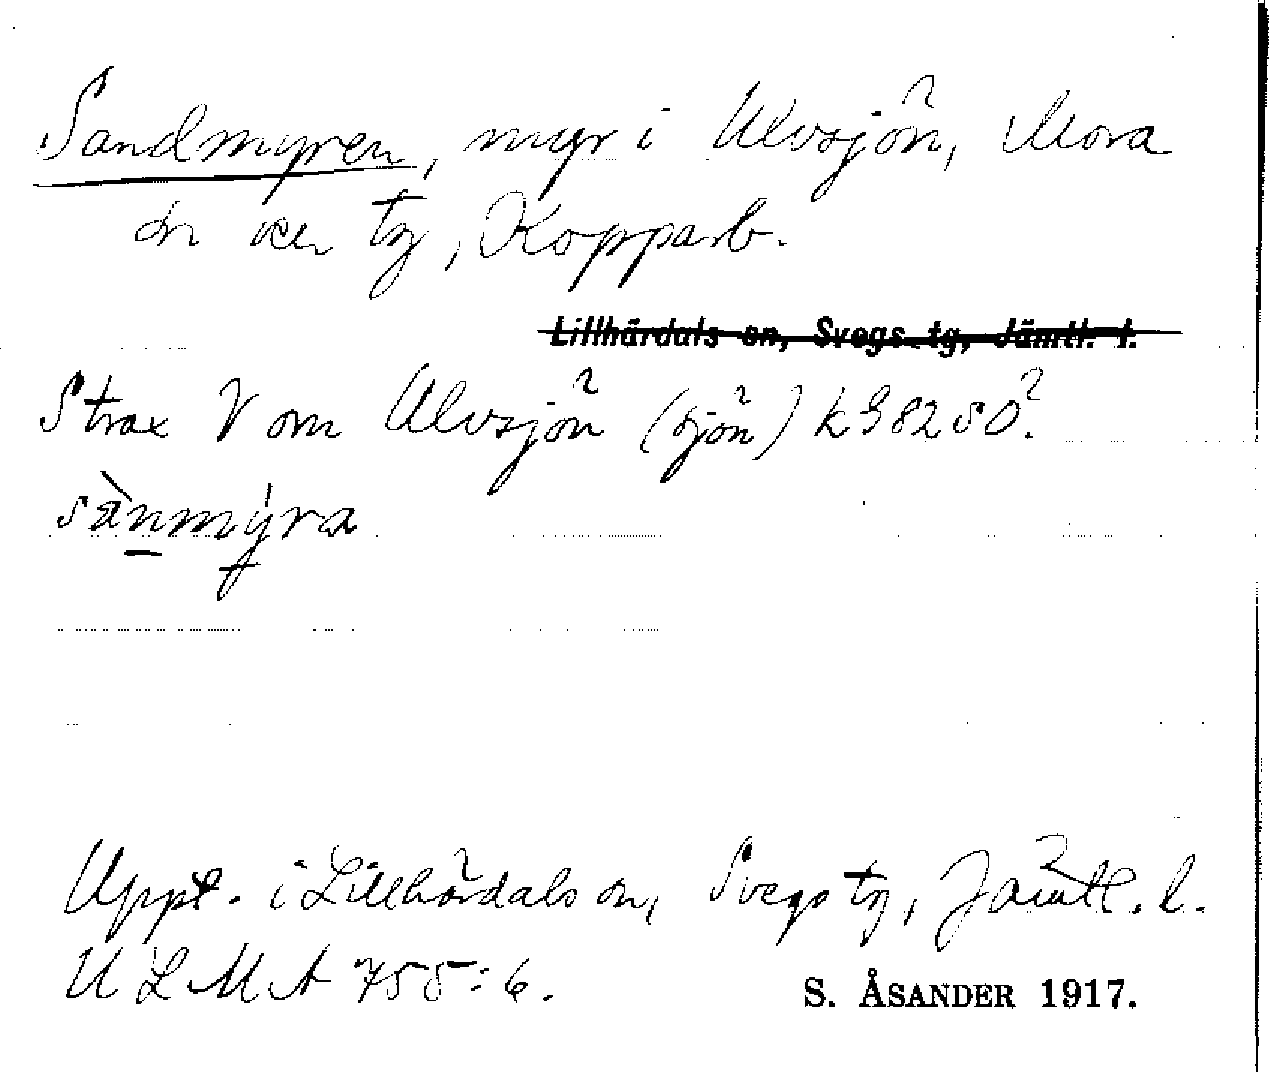 Sandmyren, myr i Ulvsjön, Mora
sn och tg, Kopparb.
Lillhärdals sn, Svegs tg, Jämtl. l.
Strax V om Ulvsjön (sjön) k 98280.
sànmýra
Uppt. i Lillhärdals sn, Svegs tg, Jämtl. l.
ULMA 755:6.
S. ÅSANDER 1917.